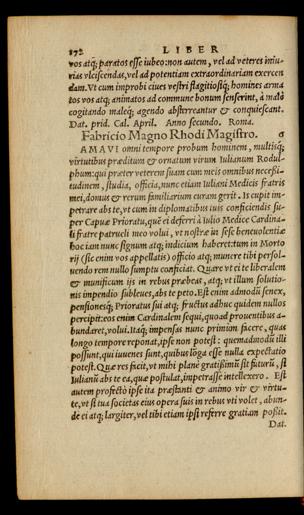 172 LIBER
vos atq; paratos esse iubeo: non autem, vel ad veteres iniu-
rias vlciscendas, vel ad potentiam extraordinariam exercen
dam. Vt cum improbi ciues vestri flagitiosiq; homines arma
tos vos atq; animatos ad commune bonum senserint, à malò
cogitando maleq; agendo absterreantur & conquiescant.
Dat. prid. Cal. April. Anno secundo. Roma.
Fabricio Magno Rhodi Magistro.
AMAVI omni tempore probum hominem, multisq;
virtutibus præditum & ornatum virum Iulianum Rodul-
phum: qui præter veterem suam cum meis omnibus necessi-
tudinem, studia, officia, nunc etiam Iuliani Medicis fratris
mei, domus & rerum familiarium curam gerit. Is cupit im-
petrare abs te, vt cum in diplomatibus iuris conficiendis su-
per Capuæ Prioratu, què ei deferri à Iulio Medice Cardina-
li fratre patrueli meo volui, vt nostræ in sese beneuolentiæ
hoc iam nunc signum atq; indicium haberet: tum in Morto
rij (sic enim vos appellatis) officio atq; munere tibi persol-
uendo rem nullo sumptu conficiat. Quare vt ei te liberalem
& munificum ijs in rebus præbeas, atq; vt illum solutio-
nis impendio subleues, abs te peto. Est enim admodū senex,
pensionesq; Prioratus sui atq; fructus adhuc quidem nullos
percipit: eos enim Cardinalem sequi, quoad prouentibus a-
bundaret, volui. Itaq; impensas nunc primùm facere, quas
longo tempore reponat, ipse non potest: quemadmodū illi
possunt, qui iuuenes sunt, quibus lōga esse nulla expectatio
potest. Quæ res facit, vt mihi planè gratissimū sit futurū, si
Iulianū abs te ea, quæ postulat, impetrasse intellexero. Est
autem profectò ipse ita præstanti & animo vir & virtu-
te, vt si tua societas eius opera suis in rebus vti volet, abun-
de ei atq; largiter, vel tibi etiam ipsi referre gratiam possit.
Dat.